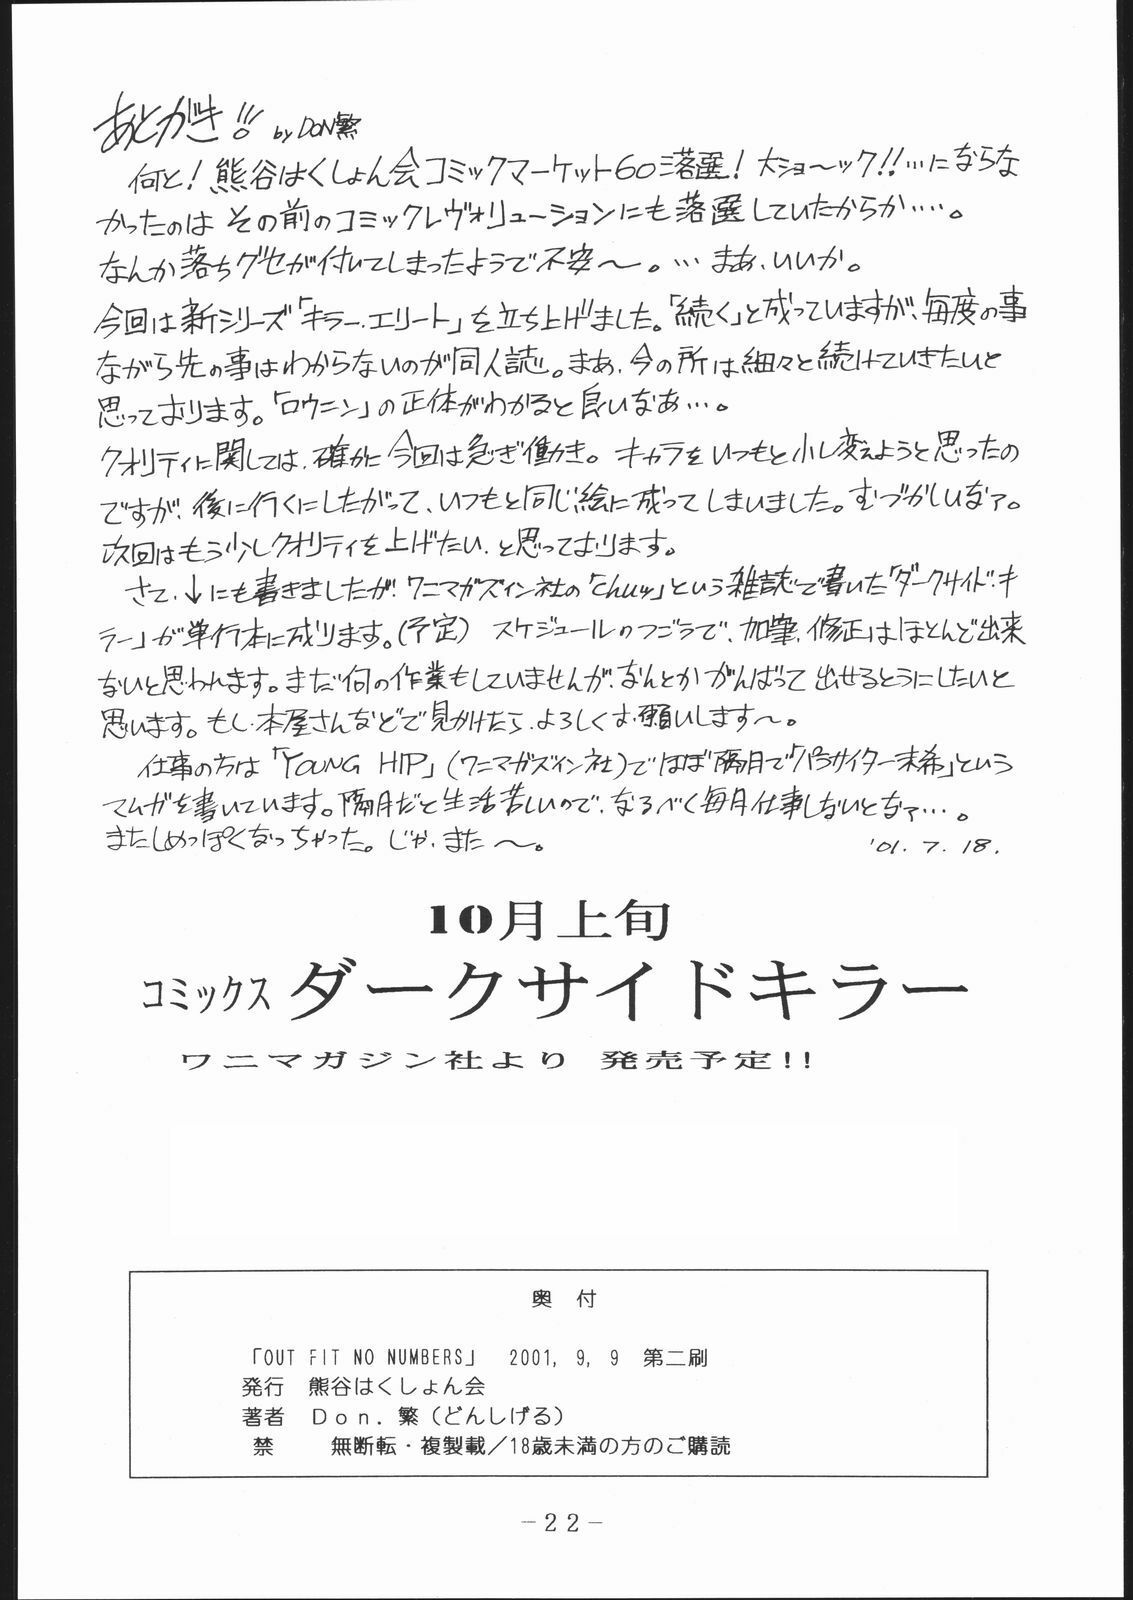 あとがき!! by DON繁
何と!熊谷はくしょん会コミックマーケット60落選!大ショ〜ック!!…にならな
かったのは その前のコミックレヴォリューションにも落選していたからか…‥。
なんか落ちグセが付いてしまったようで不安〜。…まあ、いいか。
今回は新シリーズ「キラー・エリート」を立ち上げました。「続く」と成っていますが、毎度の事
ながら先の事はわからないのが同人誌。まあ、今の所は細々と続けていきたいと
思っております。「ロウニン」の正体がわかると良いなあ…。
クオリティに関しては、確かに今回は急ぎ働き。キャラをいつもと少し変えようと思ったの
ですが、後に行くにしたがって、いつもと同じ絵に成ってしまいました。むづかしいなァ。
次回はもう少しクオリティを上げたい、と思っております。
さて、↓にも書きましたが、ワニマガズイン社の「Chuッ」という雑誌で書いた「ダークサイド・キ
ラー」が単行本に成ります。(予定) スケジュールのつごうで、加筆、修正はほとんど出来
ないと思われます。まだ何の作業もしていませんが、なんとかがんばって出せるとうにしたいと
思います。もし、本屋さんなどで見かけたら、よろしくお願いします〜。
仕事の方は「YOUNG HIP」(ワニマガズイン社)でほぼ隔月で「パラサイター未希」という
マムガを書いています。隔月だと生活苦しいので、なるべく毎月仕事しないとなァ…。
またしめっぽくなっちゃった。じゃ、また〜。 '01.7.18.
10月上旬
コミックス ダークサイドキラー
ワニマガジン社より 発売予定!!
奥 付
「OUT FIT NO NUMBERS」 2001, 9, 9 第二刷
発行 熊谷はくしょん会
著者 Ｄｏｎ．繁（どんしげる）
禁 無断転・複製載／18歳未満の方のご購読
−２２−